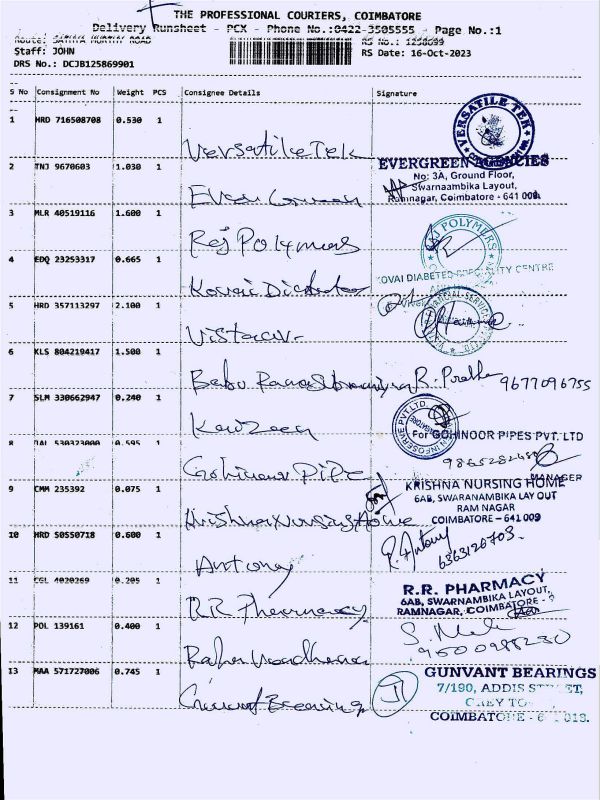 THE PROFESSIONAL COURIERS, COIMBATORE
Delivery Runsheet - PCX - Phone No.:0422-3505555 , Page No.:1
Route: SATHYA MURTHY ROAD
RS No.: 1258699
Staff: JOHN
RS Date: 16-Oct-2023
DRS No.: DCJB125869901
S No Consignment No Weight PCS Consignee Details Signature
1 HRD 716508708 0.530 1 Versatile Tek VERSATILE TEK
2 TNJ 9670603 1.030 1 EVERGREEN AGENCIES
No: 3A, Ground Floor,
Swarnaambika Layout,
Ramnagar, Coimbatore - 641 009.
3 MLR 40519116 1.600 1 Raj Polymers POLYMERS
4 EDQ 23253317 0.665 1 Kovai Diabetes KOVAI DIABETES SPECIALITY CENTRE
5 HRD 357113297 2.100 1 Vistaar
6 KLS 804219417 1.500 1 Babu Ramasubramaniyan R. 9677096755
7 SLM 330662947 0.240 1 INFOSERVE PVT.LTD.
8 IAL 530323000 0.595 1 Gohinoor Pipe For GOHINOOR PIPES PVT. LTD
MANAGER
9 CMM 235392 0.075 1 Krishna Nursing Home KRISHNA NURSING HOME
6AB, SWARANAMBIKA LAY OUT
RAM NAGAR
COIMBATORE - 641 009
10 HRD 50550718 0.600 1 Antony R. Antony
6363120703.
11 CGL 4020269 0.205 1 R R Pharmacy R.R. PHARMACY
6AB, SWARNAMBIKA LAYOUT,
RAMNAGAR, COIMBATORE - 9
12 POL 139161 0.400 1 S.
9500988230
13 MAA 571727006 0.745 1 Gunvant Bearing GUNVANT BEARINGS
7/190, ADDIS ST
COIMBATORE